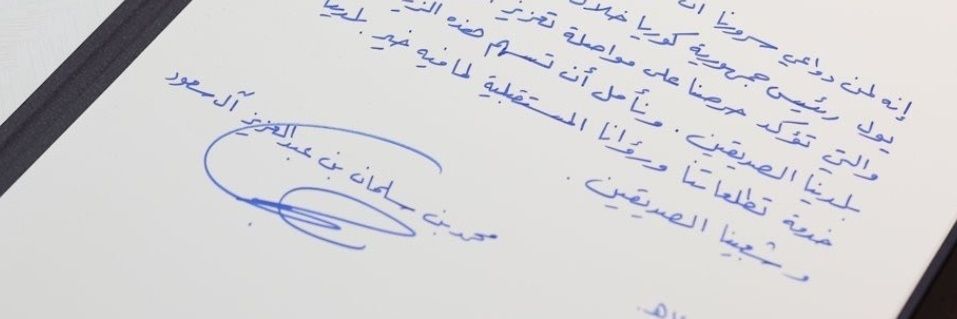 إنه لمن دواعي سرورنا أن
يول رئيس جمهورية كوريا خلال
والتي تؤكد حرصنا على مواصلة تعزيز
بلدينا الصديقين. ونأمل أن تسهم هذه
خدمة تطلعاتنا ورؤانا المستقبلية لما فيه خير بلدينا
وشعبينا الصديقين.
محمد بن سلمان بن عبدالعزيز آل سعود